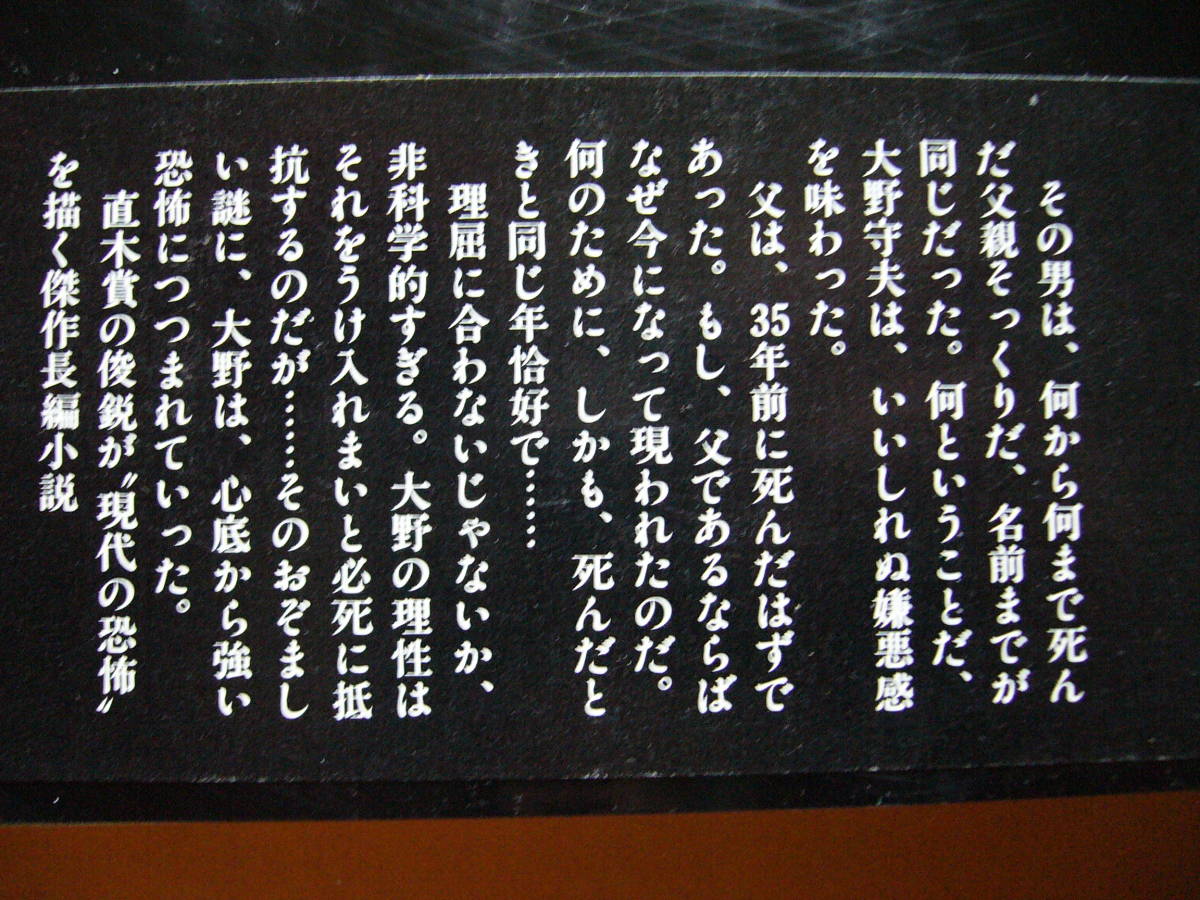 その男は、何から何まで死ん
だ父親そっくりだ、名前までが
同じだった。何ということだ、
大野守夫は、いいしれぬ嫌悪感
を味わった。
父は、35年前に死んだはずで
あった。もし、父であるならば
なぜ今になって現われたのだ。
何のために、しかも、死んだと
きと同じ年恰好で……
理屈に合わないじゃないか、
非科学的すぎる。大野の理性は
それをうけ入れまいと必死に抵
抗するのだが……そのおぞまし
い謎に、大野は、心底から強い
恐怖につつまれていった。
直木賞の俊鋭が〝現代の恐怖〟
を描く傑作長編小説